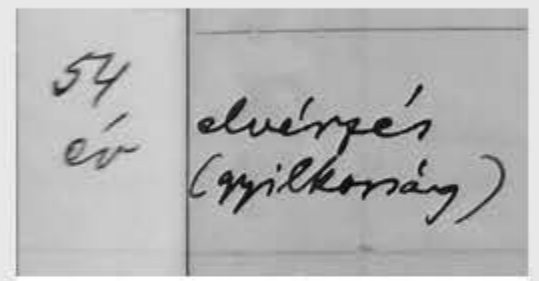 54
év
elvérzés
(gyilkosság)